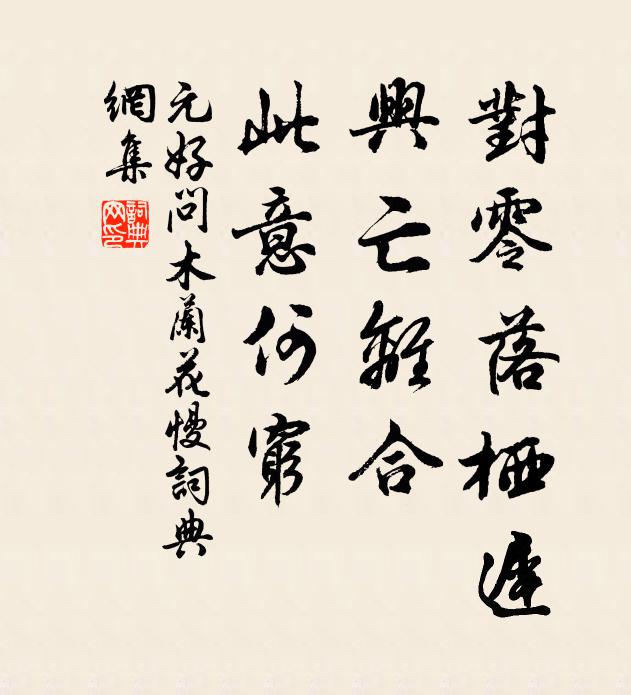 對零落栖遲
興亡離合
此意何窮
元好問木蘭花慢詞典
網集
詞典网印